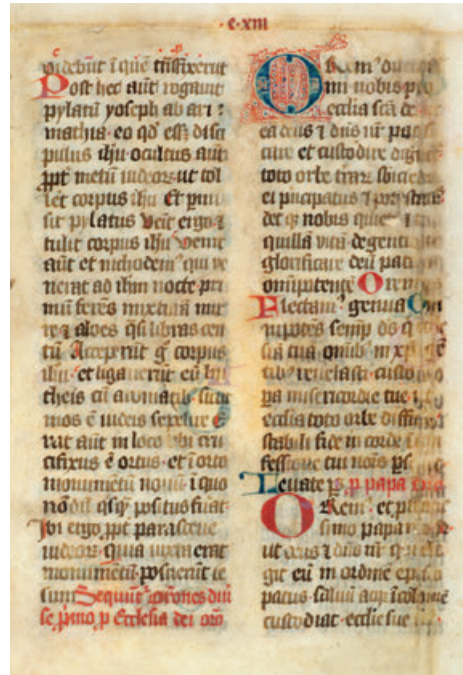 c·xiii
videbut i que trasfixerut
Post hec aut rogauit
pylatu yoseph ab ari
mathia· eo qd esset disci
pulus ihu· ocultus aut
ppt metu iudeor· ut tol
let corpus ihu· Et pmi
sit pylatus Venit ergo ⁊
tulit corpus ihu· Venit
aut et nichodem' qui ve
nerat ad ihm nocte pri
mu feres mixtura mir
re ⁊ aloes qsi libras cen
tu Acceperut g corpus
ihu· et ligauerut eu lin
theis cu aromatib sicut
mos e iudeis sepelire e
rat aut in loco ubi cru
cifixus e ortus· et i orto
monumetu nouu i quo
nodu qsq positus fuat
Ibi ergo ppt parasceue
iudeor· quia iuxta erat
monumetu posuerut ie
sum Sequut' orones diui
se pimo p Ecclesia dei oro
Orem' 
mi nobis pro
ecclia sca dei
ea deus ⁊ dns nr pac
care et custodire dig
toto orbe trar subicie
ei pncipatus ⁊ potestates
det q nobis quieta ⁊
quilla vita degentib
glorificare deu patre
omnipotente Orem
Flectam' genua Om
nipotes semp ds q
ria tua omib in xpo ge
tib reuelasti· custo
pa misericordie tue· ut
ecclia toto orbe diffusa
stabili fide in corde
fessione tui nois pse
Leuate ps p papa oro
Orem' et p
simo papa nro
ut deus ⁊ dns nr q ele
git eu in ordine episco
patus· saluu atq icolume
custodiat· ecclie sue